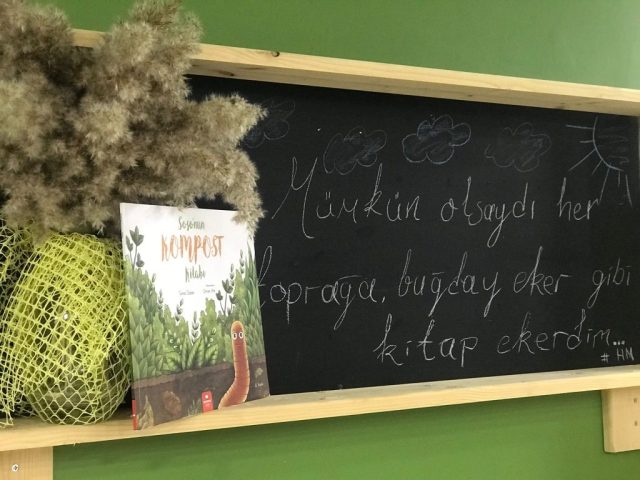 Mümkün olsaydı her
toprağa, buğday eker gibi
kitap ekerdim...
# HN
Soso'nun
KOMPOST
Kitabı